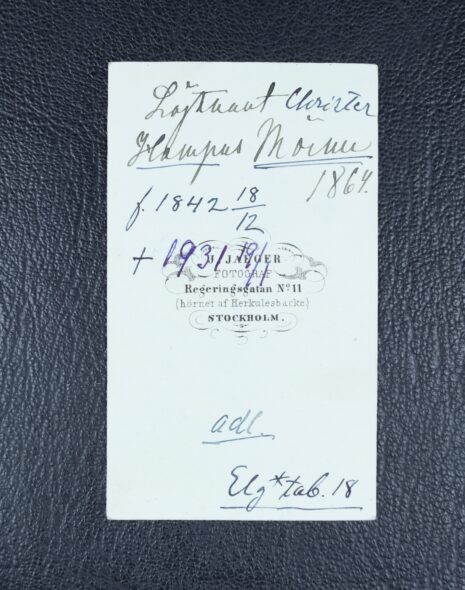 Löjtnant Christer
Hampus Mörner
1864.
f. 1842 18/12
+ 1931 19/1
J. JAEGER
FOTOGRAF
Regeringsgatan Nº 11
(hörnet af Herkulesbacke)
STOCKHOLM.
adl.
Elg* tab. 18